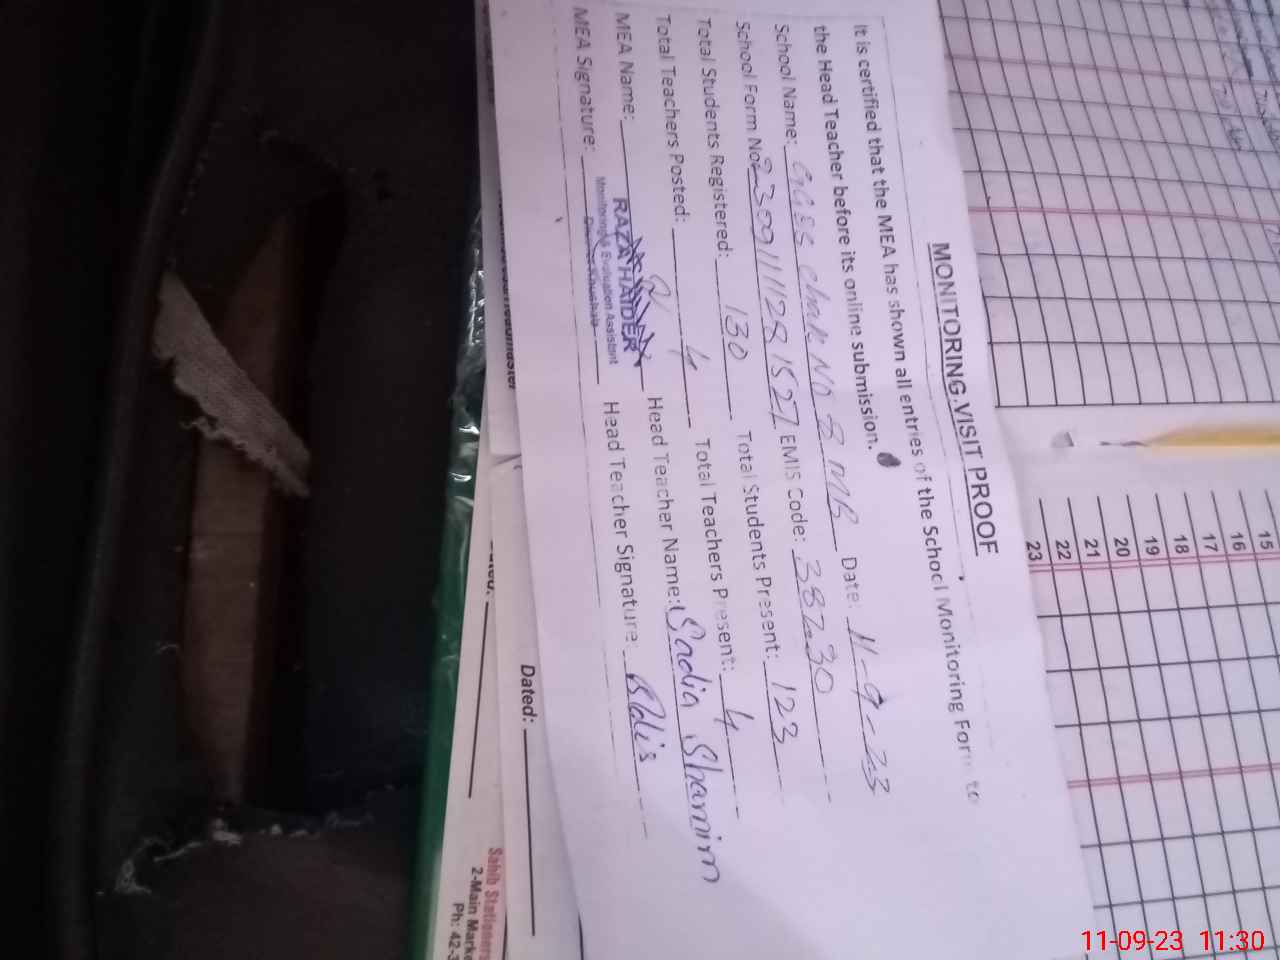 MONITORING VISIT PROOF
It is certified that the MEA has shown all entries of the School Monitoring Form to
the Head Teacher before its online submission.
School Name: GGES Chak No 8 MB Date: 11-9-23
School Form No 2309111281527 EMIS Code: 38230
Total Students Registered: 130 Total Students Present: 123
Total Teachers Posted: 4 Total Teachers Present: 4
MEA Name: RAZA HAIDER Head Teacher Name: Sadia Shamim
Monitoring & Evaluation Assistant
District Khushab
MEA Signature: Head Teacher Signature:
Dated:
Sahib Stationers
2-Main Marke
Ph: 42-3
15
16
17
18
19
20
21
22
23
11-09-23 11:30